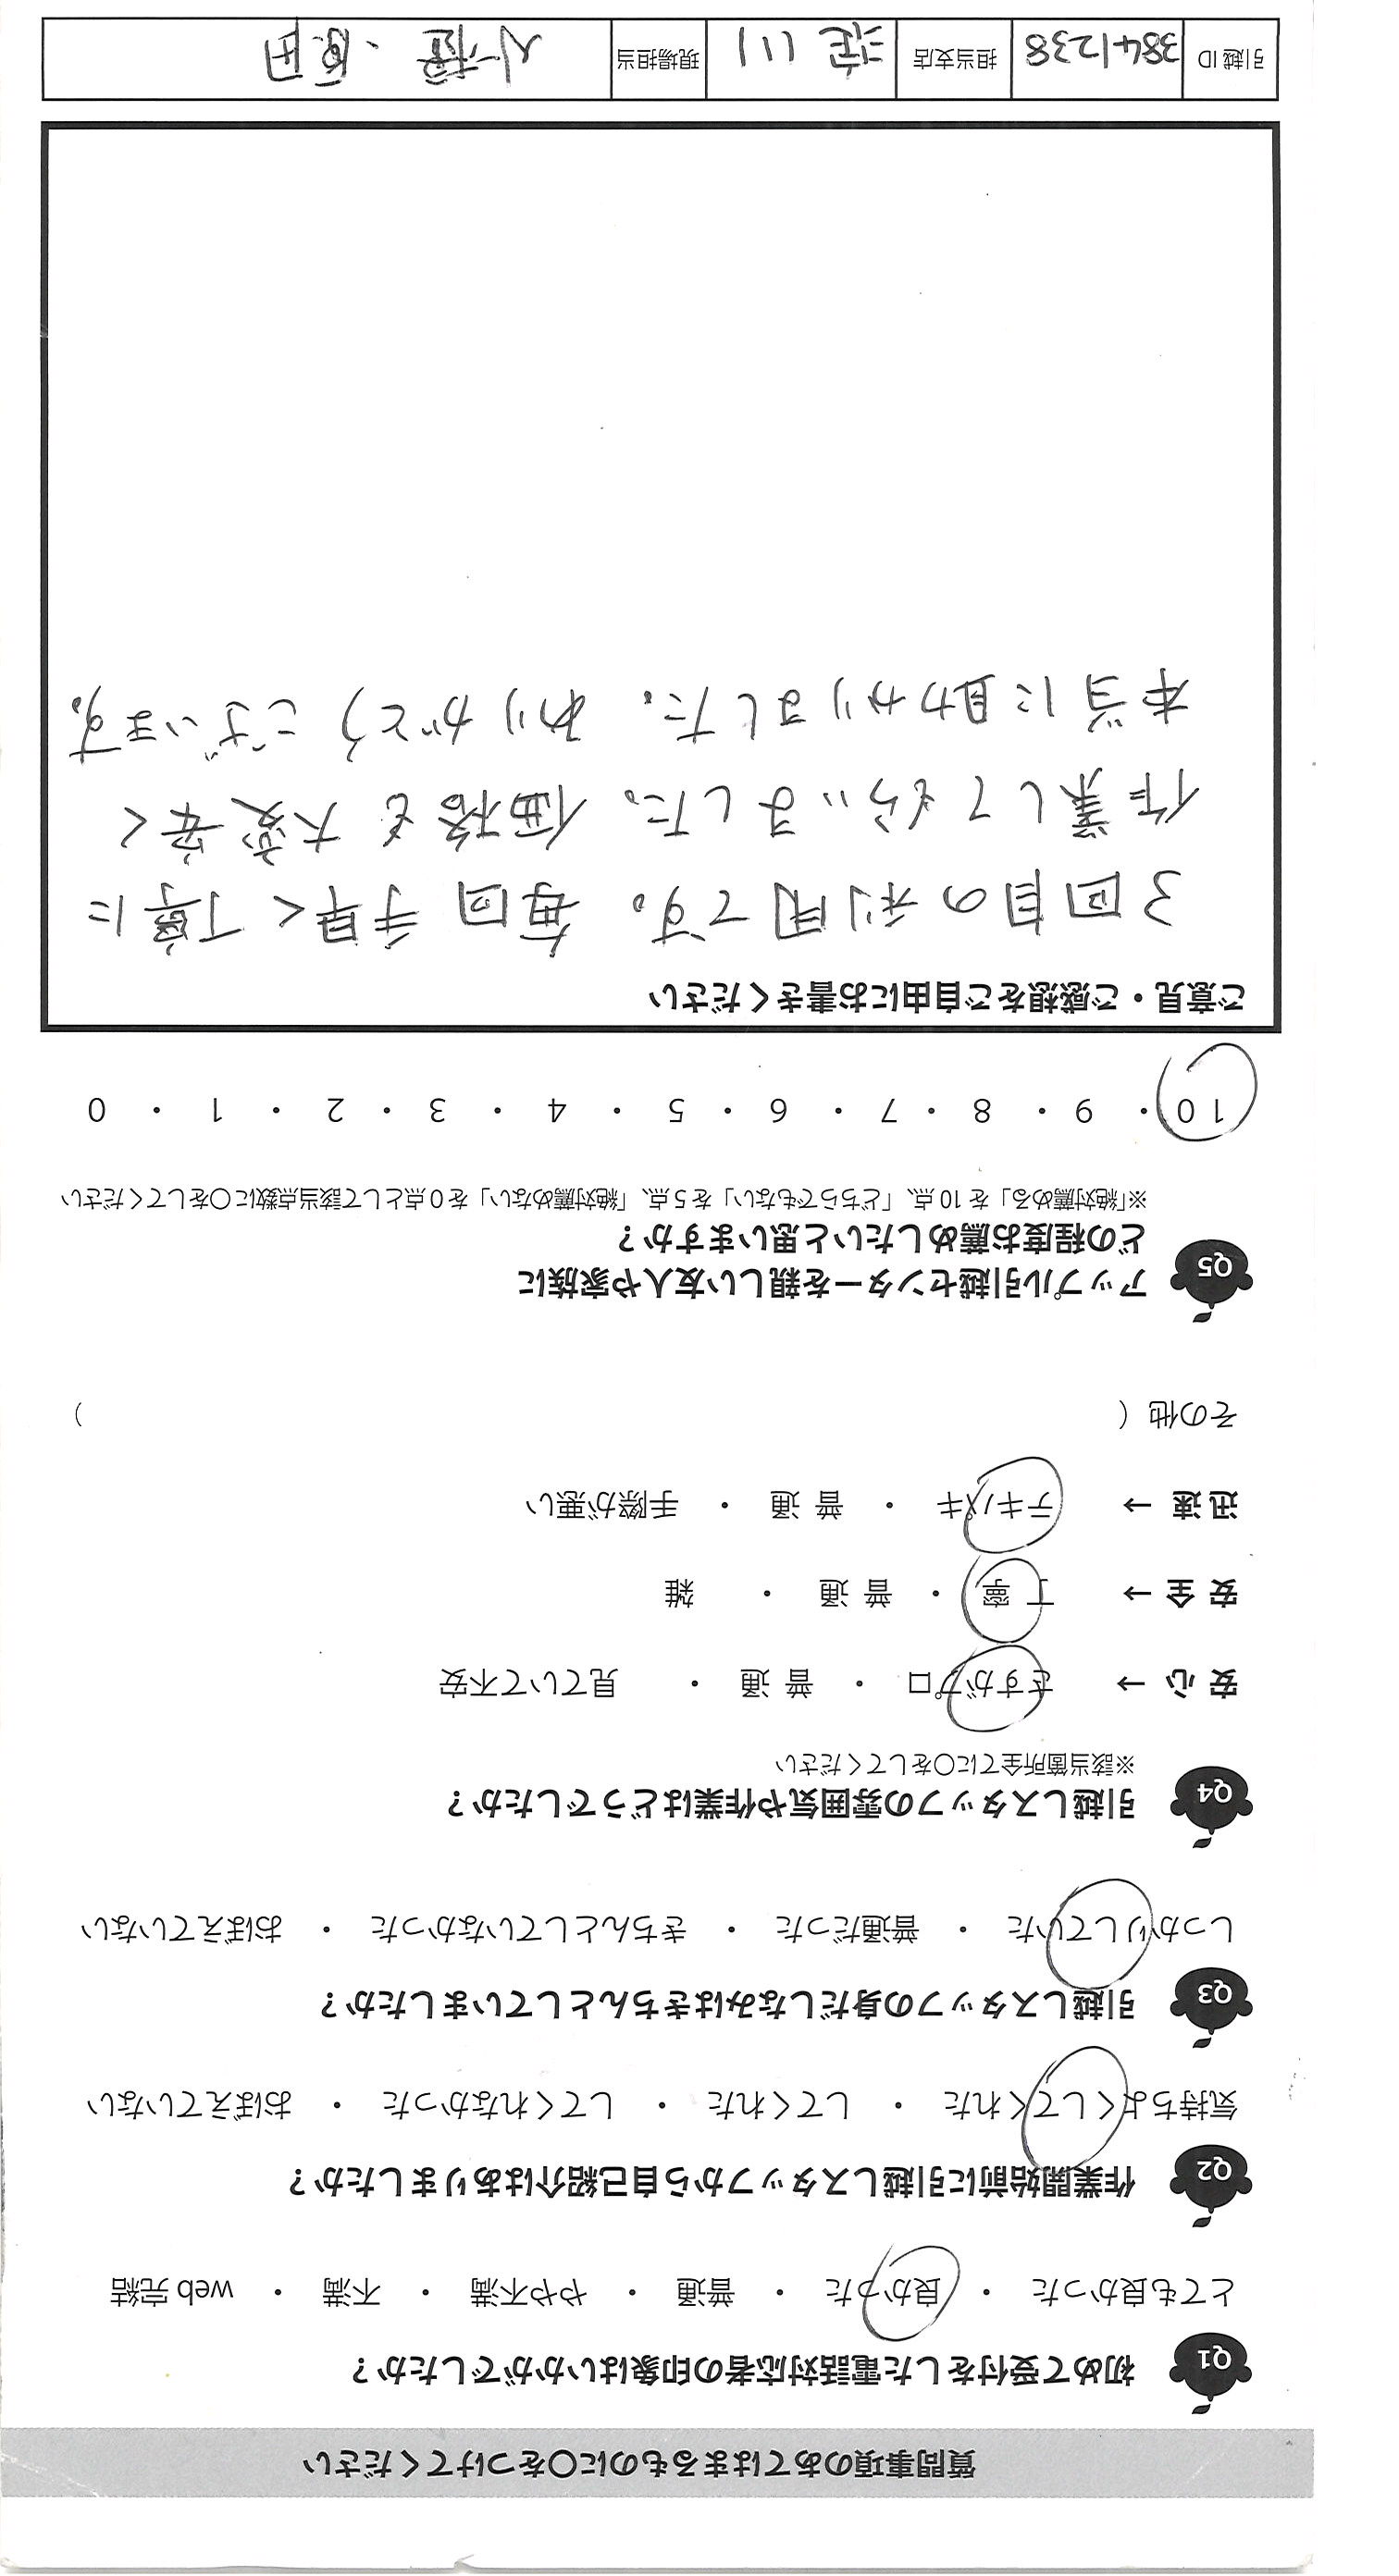 質問事項のあてはまるものに〇をつけてください
Q1 初めて受付をした電話対応者の印象はいかがでしたか？
とても良かった ・ 良かった ・ 普通 ・ やや不満 ・ 不満 ・ web 完結
Q2 作業開始前に引越しスタッフから自己紹介はありましたか？
気持ちよくしてくれた ・ してくれた ・ してくれなかった ・ おぼえていない
Q3 引越しスタッフの身だしなみはきちんとしていましたか？
しっかりしていた ・ 普通だった ・ きちんとしていなかった ・ おぼえていない
Q4 引越しスタッフの雰囲気や作業はどうでしたか？
※該当箇所全てに〇をしてください
安 心 → さすがプロ ・ 普 通 ・ 見ていて不安
安 全 → 丁 寧 ・ 普 通 ・ 雑
迅 速 → テキパキ ・ 普 通 ・ 手際が悪い
その他（ ）
Q5 アップル引越センターを親しい友人や家族に
どの程度お薦めしたいと思いますか？
※「絶対薦める」を 10 点、「どちらでもない」を 5 点、「絶対薦めない」を 0 点として該当点数に〇をしてください
10 ・ 9 ・ 8 ・ 7 ・ 6 ・ 5 ・ 4 ・ 3 ・ 2 ・ 1 ・ 0
ご意見・ご感想をご自由にお書きください
3回目の利用です。毎回手早く丁寧に
作業してもらいました。価格も大変安く
本当に助かりました。ありがとうございます。
引越 ID 3841238 担当支店 淀川 現場担当 小 、原田